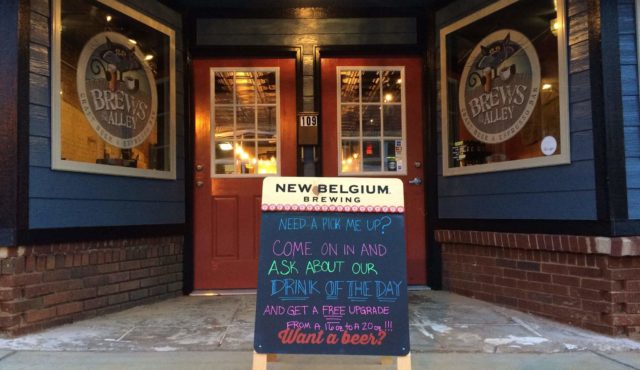 BREWS
ALLEY
109
BREWS
ALLEY
NEW BELGIUM
BREWING
NEED A PICK ME UP?
COME ON IN AND
ASK ABOUT OUR
DRINK OF THE DAY
AND GET A FREE UPGRADE
FROM A 16oz TO A 20oz!!!
Want a beer?